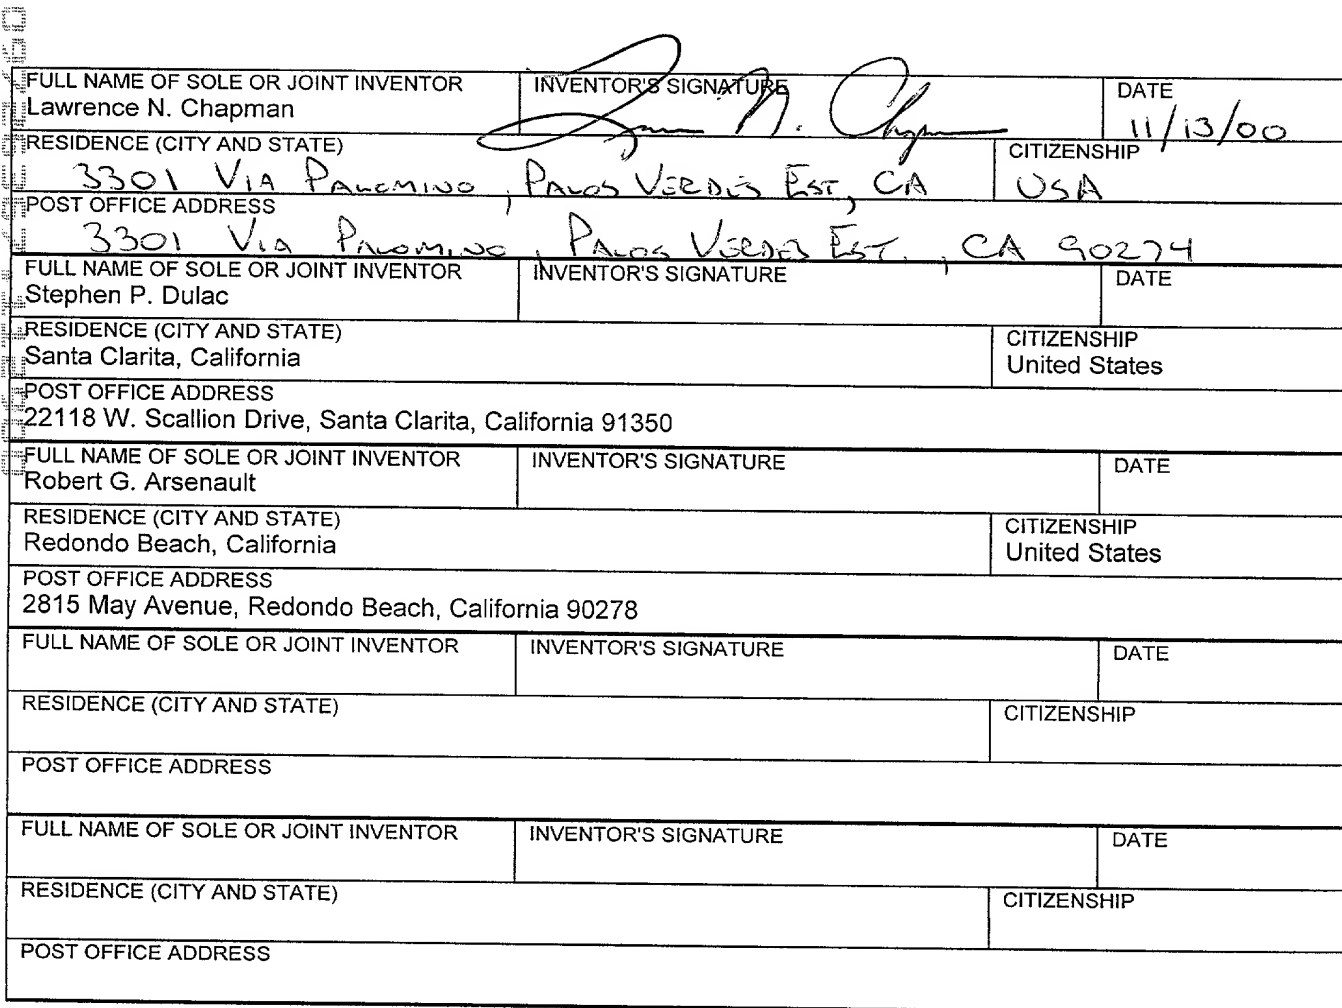 FULL NAME OF SOLE OR JOINT INVENTOR INVENTOR'S SIGNATURE DATE
Lawrence N. Chapman 11/13/00
RESIDENCE (CITY AND STATE) CITIZENSHIP
3301 VIA PALOMINO, PALOS VERDES EST, CA USA
POST OFFICE ADDRESS
3301 VIA PALOMINO, PALOS VERDES EST., CA 90274
FULL NAME OF SOLE OR JOINT INVENTOR INVENTOR'S SIGNATURE DATE
Stephen P. Dulac
RESIDENCE (CITY AND STATE) CITIZENSHIP
Santa Clarita, California United States
POST OFFICE ADDRESS
22118 W. Scallion Drive, Santa Clarita, California 91350
FULL NAME OF SOLE OR JOINT INVENTOR INVENTOR'S SIGNATURE DATE
Robert G. Arsenault
RESIDENCE (CITY AND STATE) CITIZENSHIP
Redondo Beach, California United States
POST OFFICE ADDRESS
2815 May Avenue, Redondo Beach, California 90278
FULL NAME OF SOLE OR JOINT INVENTOR INVENTOR'S SIGNATURE DATE
RESIDENCE (CITY AND STATE) CITIZENSHIP
POST OFFICE ADDRESS
FULL NAME OF SOLE OR JOINT INVENTOR INVENTOR'S SIGNATURE DATE
RESIDENCE (CITY AND STATE) CITIZENSHIP
POST OFFICE ADDRESS